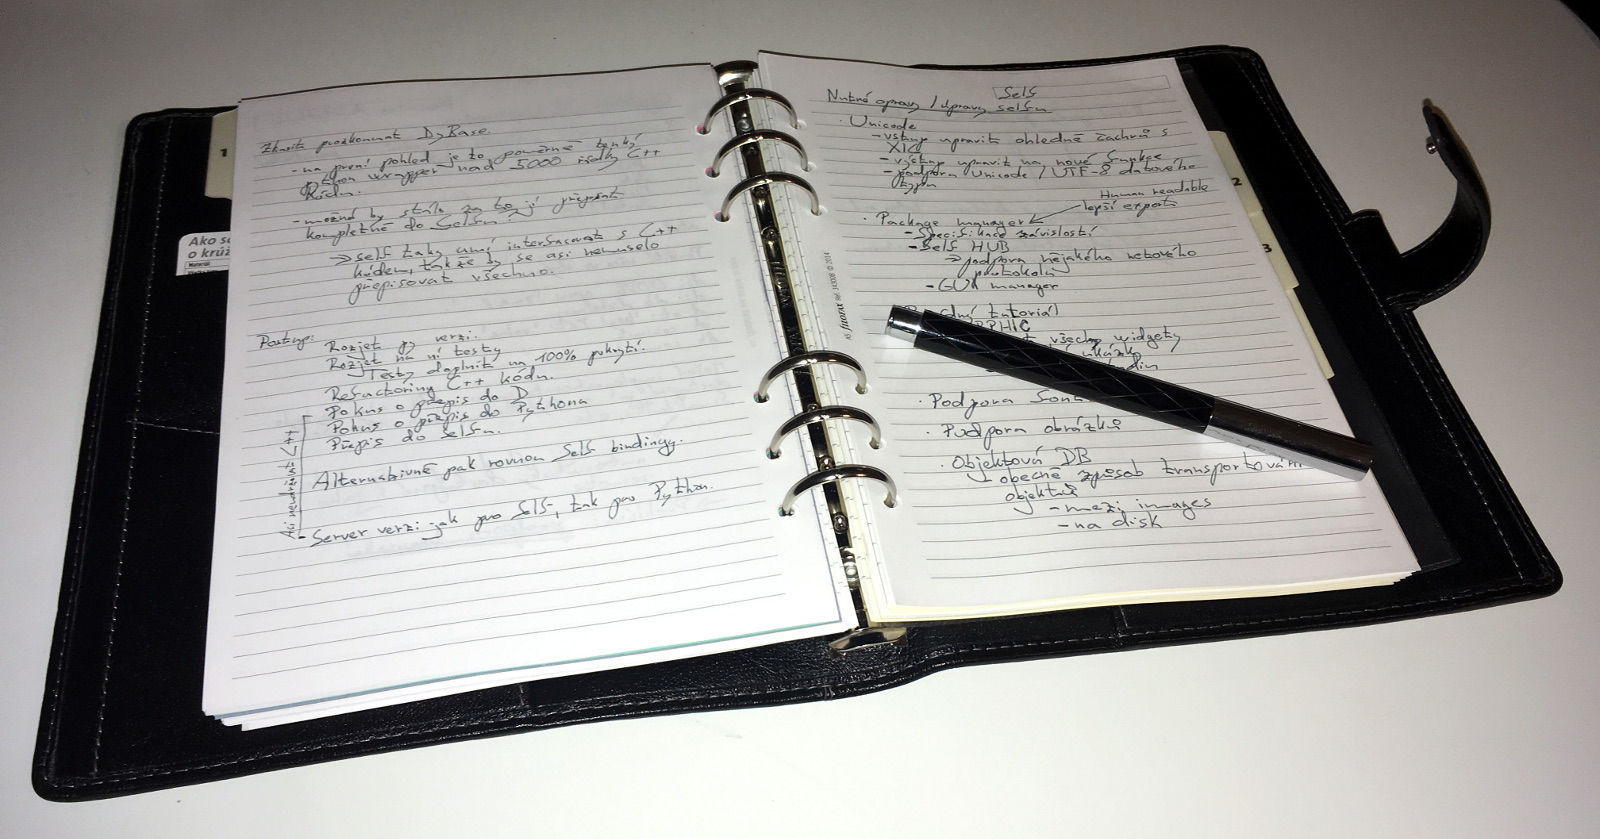 Zkusit prozkoumat DyBase.
- na první pohled je to poměrně tenký
python wrapper nad 5000 řádky C++
kódu.
- možná by stálo za to jí přepsat
kompletně do Selfu.
→ self taky umí interfacovat s C++
kódem, takže by se asi nemuselo
přepisovat všechno.
Postup:
Rozjet py verzi.
Rozjet na ní testy
Testy doplnit na 100% pokrytí.
Refactoring C++ kódu.
Pokus o přepis do D
Pokus o přepis do Pythona
Přepis do selfu.
Alternativně pak rovnou Self bindingy.
- Server verzi jak pro Self, tak pro Python.
C++
Ako
o krúž
1
Self
Nutné opravy / úpravy selfu
· Unicode
- vstupy upravit ohledně
XIC
- výstupy upravit na nové funkce
- podpora Unicode / UTF-8 datového
typu
Human readable
lepší exporty
· Package manager
- Specifikace závislostí
- Self HUB
→ podpora nějakého
protokolu
- GUI manager
tutoriál
všechny widgety
· Podpora
· Podpora obrázků
· Objektová DB
obecně způsob transportování
objektů
- mezi images
- na disk
A5 filofax Ref 343008 © 2014
2
3